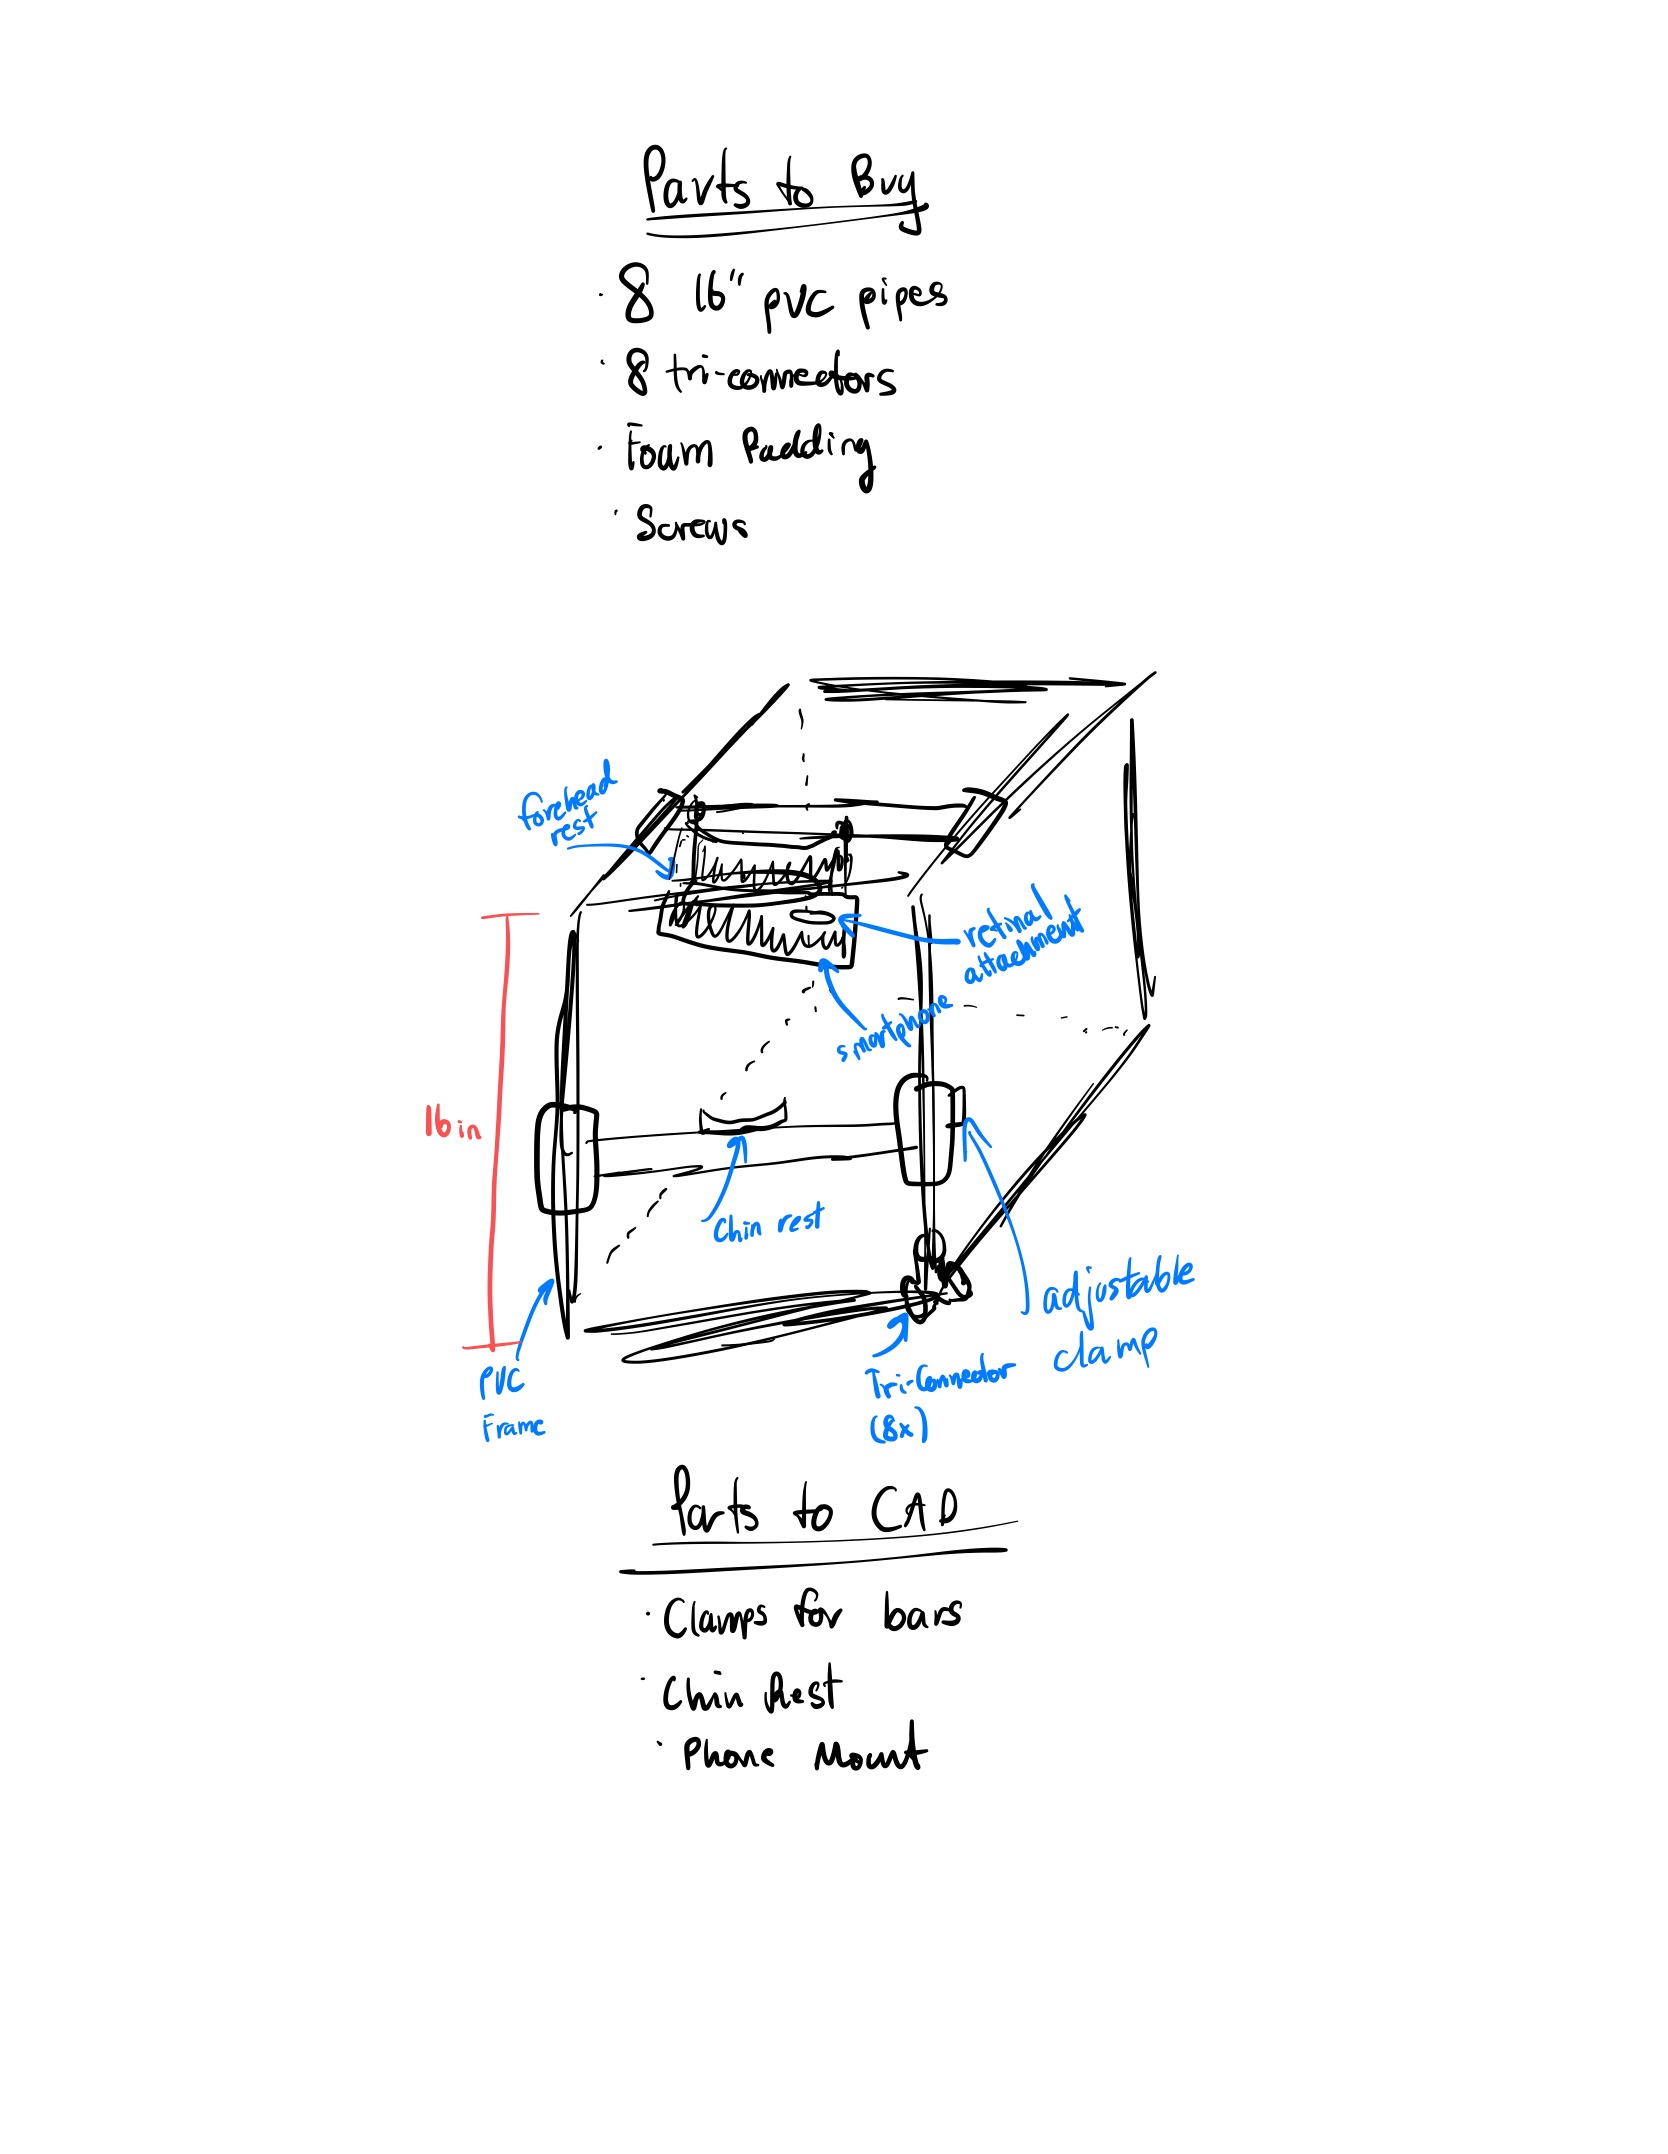 Parts to Buy
· 8 16" pvc pipes
· 8 tri-connectors
· Foam Padding
· Screws
forehead
rest
retinal
attachment
smartphone
16in
Chin rest
adjustable
clamp
PVC
Frame
Tri-Connector
(8x)
Parts to CAD
· Clamps for bars
· Chin Rest
· Phone Mount